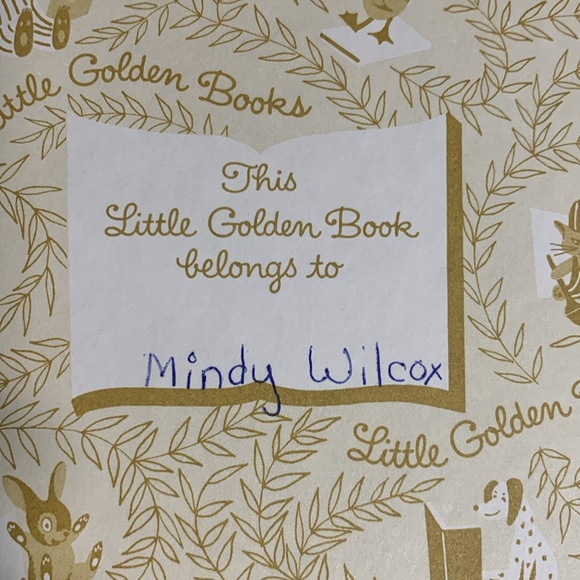 Little Golden Books
This
Little Golden Book
belongs to
Mindy Wilcox
Little Golden